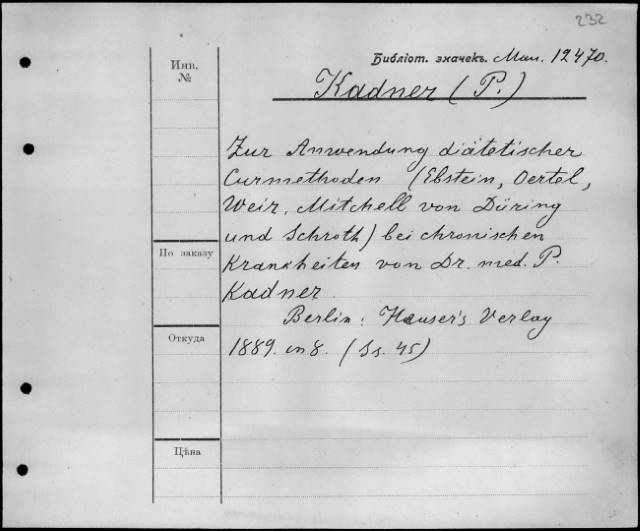 232
Библіот. значекъ. Мал. 12470.
Инв.
№
Kadner (P.)
Zur Anwendung diätetischer
Curmethoden (Ebstein, Oertel,
Weir, Mitchell von Düring
und Schroth) bei chronischen
По заказу
Krankheiten von Dr. med. P.
Kadner.
Berlin: Heuser's Verlag
Откуда
1889. in 8. (Ss. 45)
Цѣна